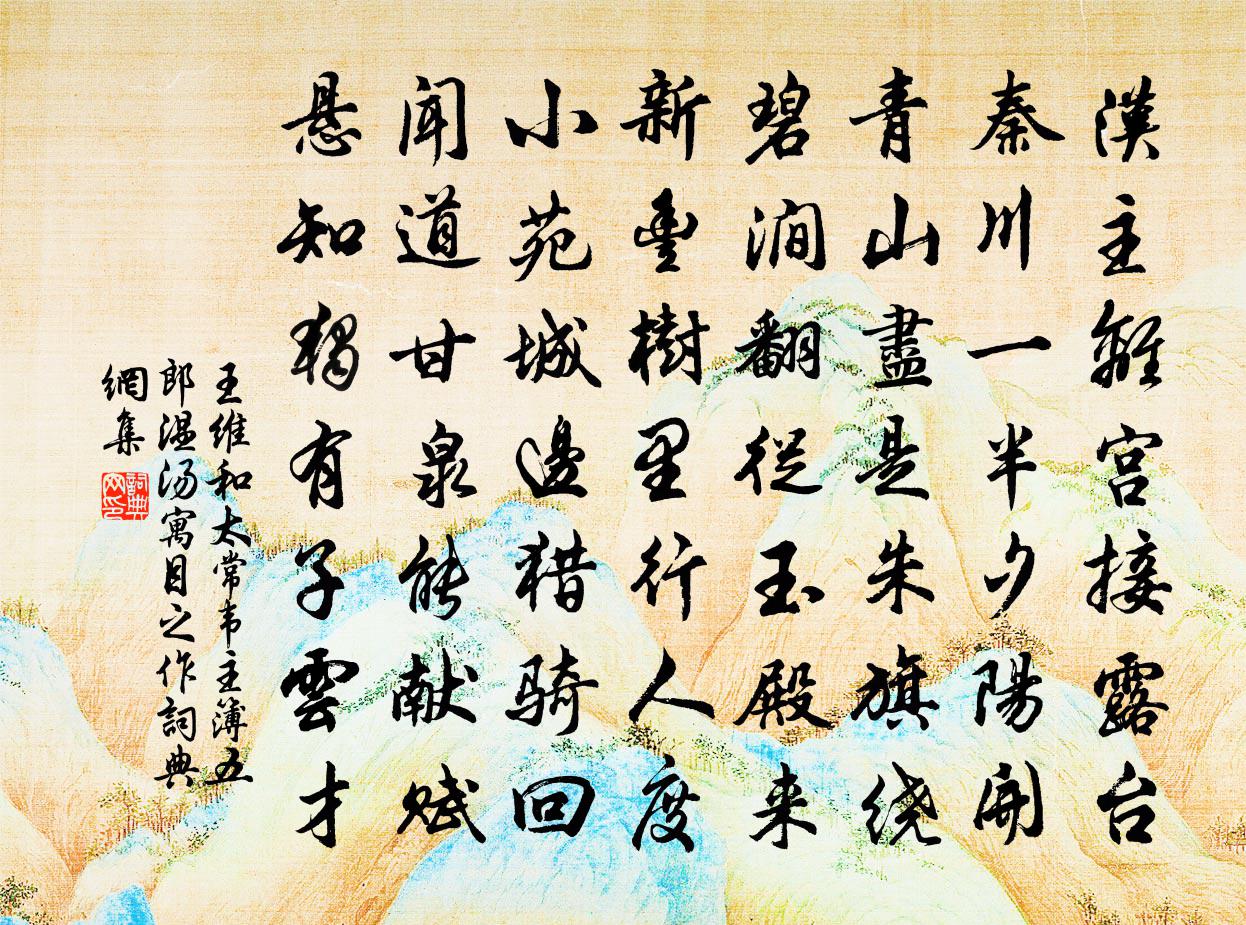 漢主離宫接露台
秦川一半夕陽開
青山盡是朱旗绕
碧澗翻從玉殿来
新豐樹里行人度
小苑城邊猎骑回
闻道甘泉能献赋
悬知獨有子雲才
王維和太常韦主簿五
郎温汤寓目之作詞典
網集
詞典
网印